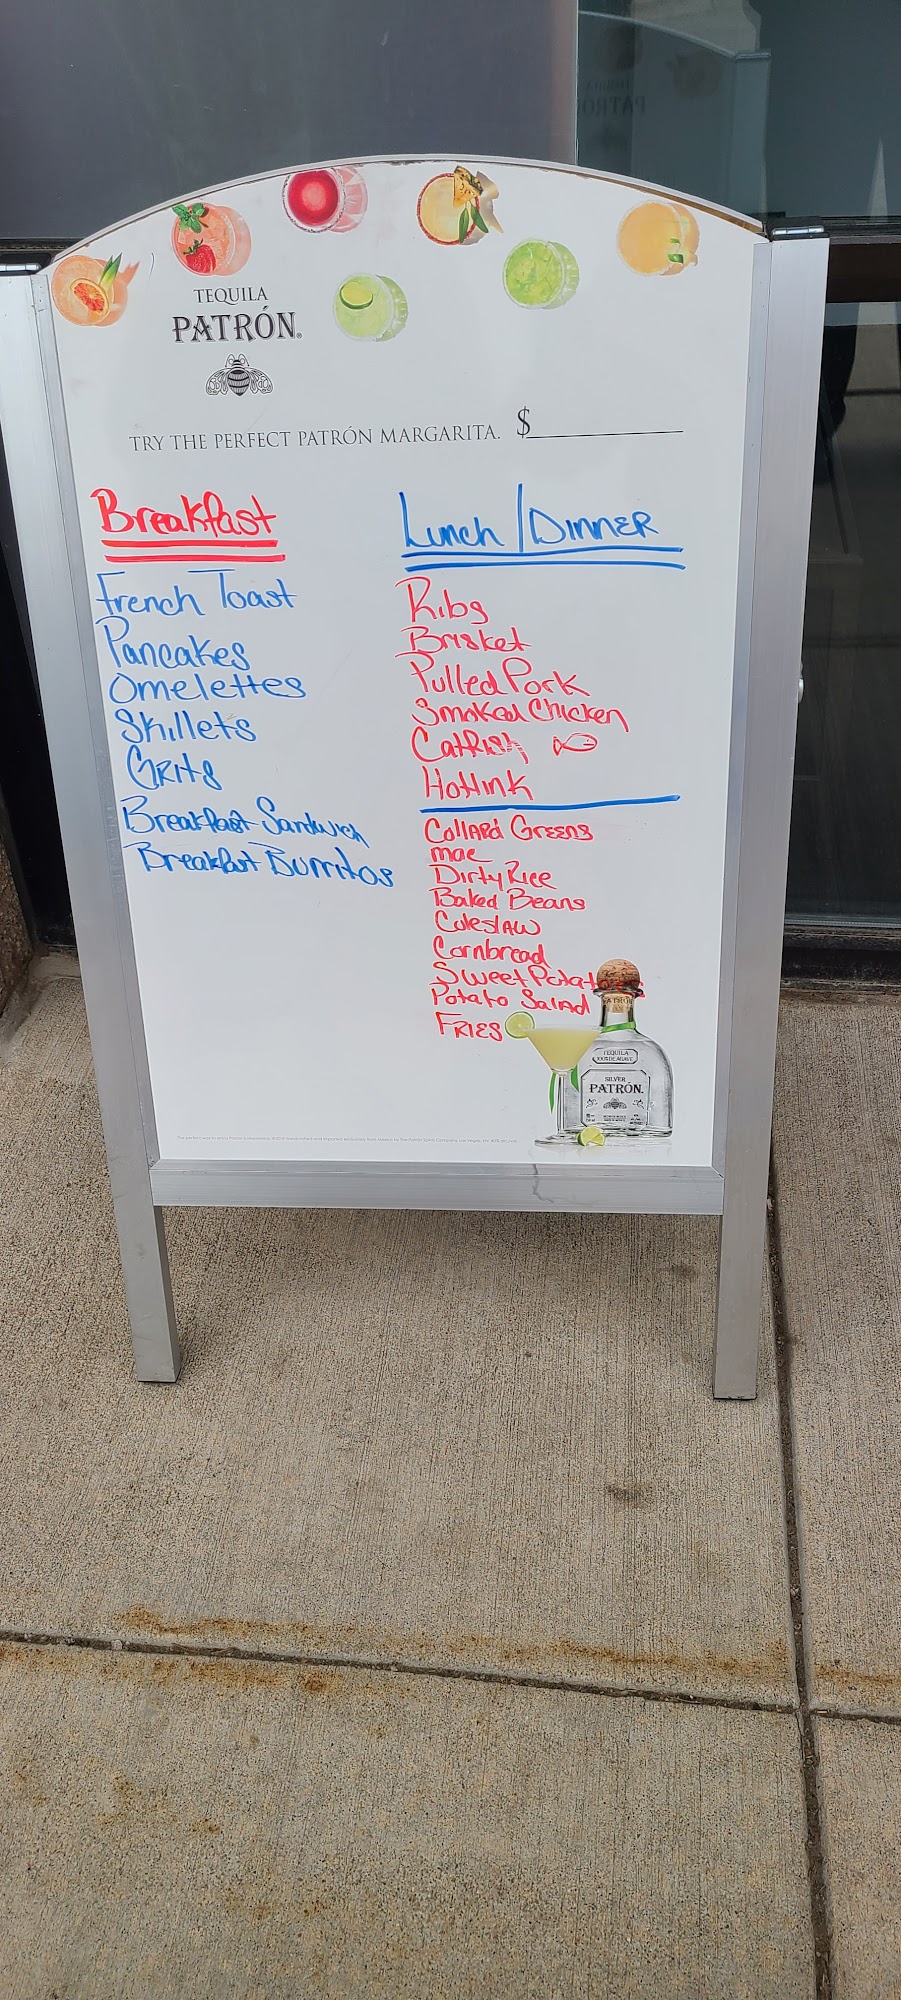 TEQUILA
PATRÓN
TRY THE PERFECT PATRÓN MARGARITA. $
Breakfast
French Toast
Pancakes
Omelettes
Skillets
Grits
Breakfast Sandwich
Breakfast Burritos
Lunch/DINNER
Ribs
Brisket
Pulled Pork
Smoked Chicken
Catfish
Hotlink
Collard Greens
mac
Dirty Rice
Baked Beans
Coleslaw
Cornbread
Sweet Potat
Potato Salad
FRIES
PATRÓN
TEQUILA
100% DE AGAVE
SILVER
PATRÓN